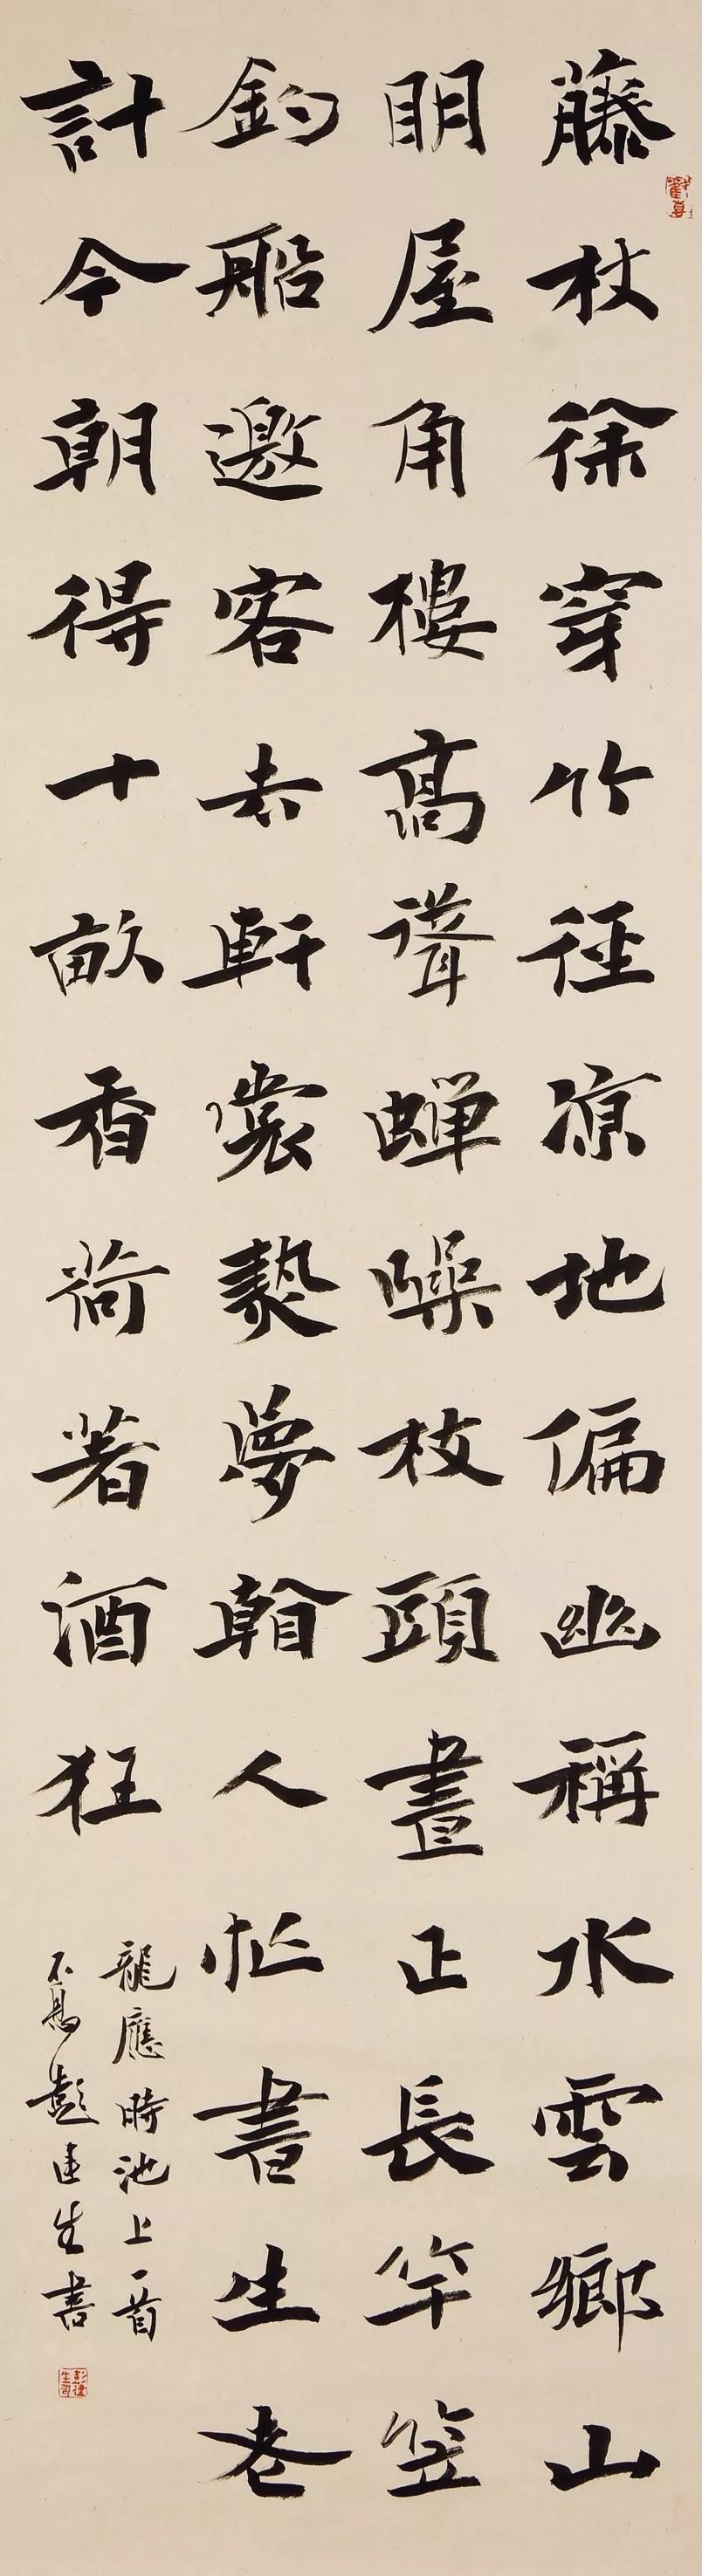 歡喜
藤杖徐穿竹徑涼地偏幽稱水雲鄉山
明屋角樓高聳蟬噪枝頭晝正長竿笠
釣船邀客去軒裳夢人忙書生老
計今朝得十畝香荷著酒狂
龍應時池上一首
不息彭建生書